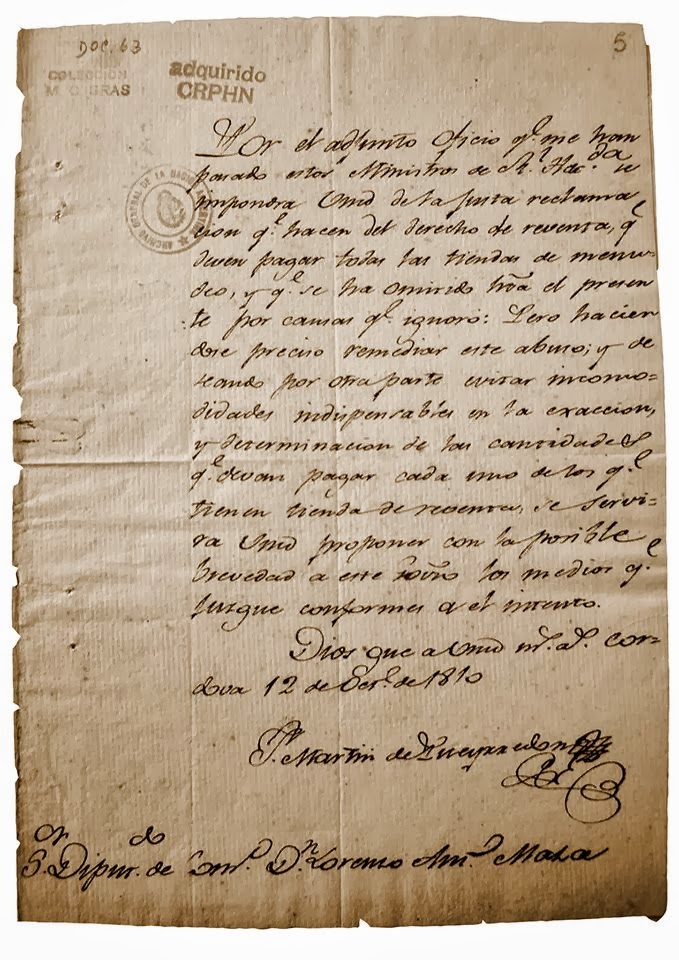 DOC. 63
5
COLECCION
M. C. GRAS
adquirido
CRPHN
ARCHIVO GENERAL DE LA NACION ARGENTINA
Por el adjunto Oficio q.e me han
pasado estos Ministros de R.l Hac.da se
impondrá Vmd de la justa reclama
cion q.e hacen del derecho de reventa, q.e
deven pagar todas las tiendas de menu-
deo, y q.e se ha omitido hta el presen
te por causas q.e ignoro: Pero hacien
dose preciso remediar este abuso; y de
seando por otra parte evitar incomo-
didades indispensables en la exaccion,
y determinacion de las cantidades
q.e devan pagar cada uno de los q.e
tienen tienda de reventa, se servi-
ra Vmd proponer con la posible
brevedad a este Govno los medios q.e
juzgue conformes a el intento.
Dios gue a Vmd m.s a.s Cor-
dova 12 de de 1810
Martin de Pueyrredon
S.or Diput.do de Com.o D.n Lorenzo Ant.o Maza